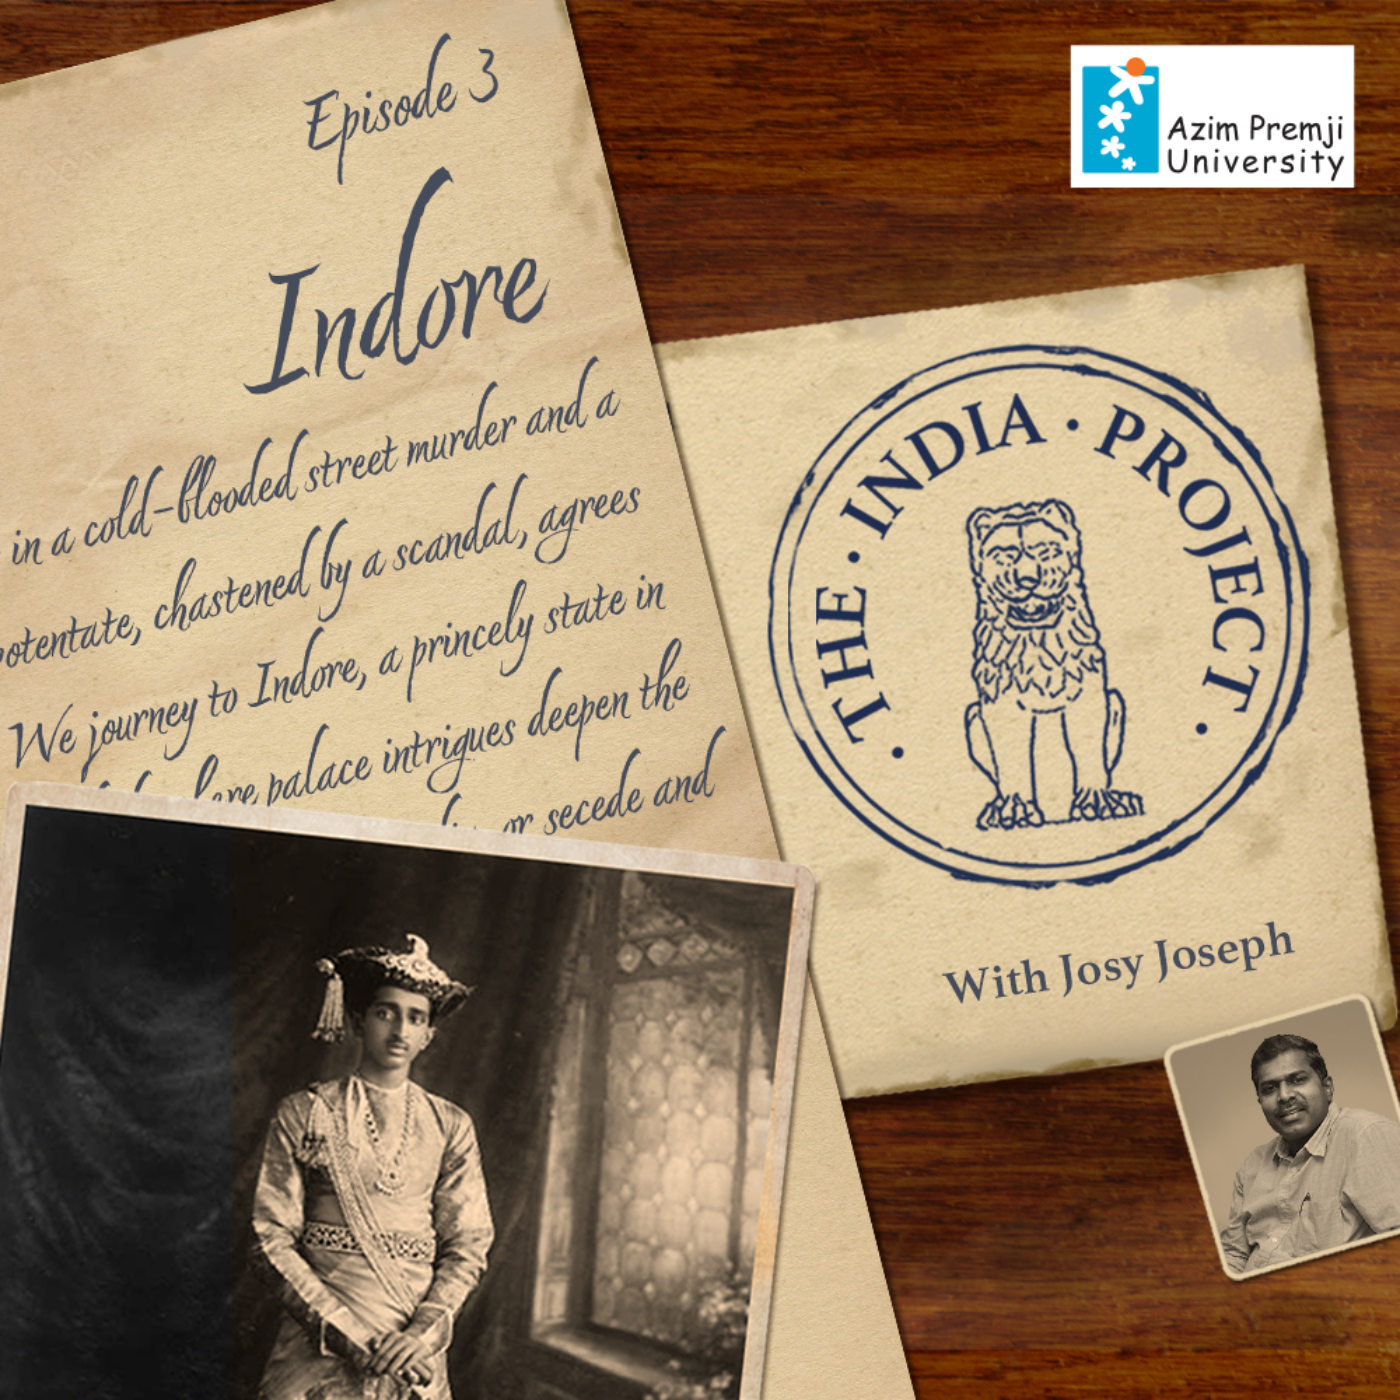 Episode 3
Indore
in a cold-blooded street murder and a
potentate, chastened by a scandal, agrees
We journey to Indore, a princely state in
palace intrigues deepen the
or secede and
Azim Premji
University
· THE · INDIA · PROJECT ·
With Josy Joseph